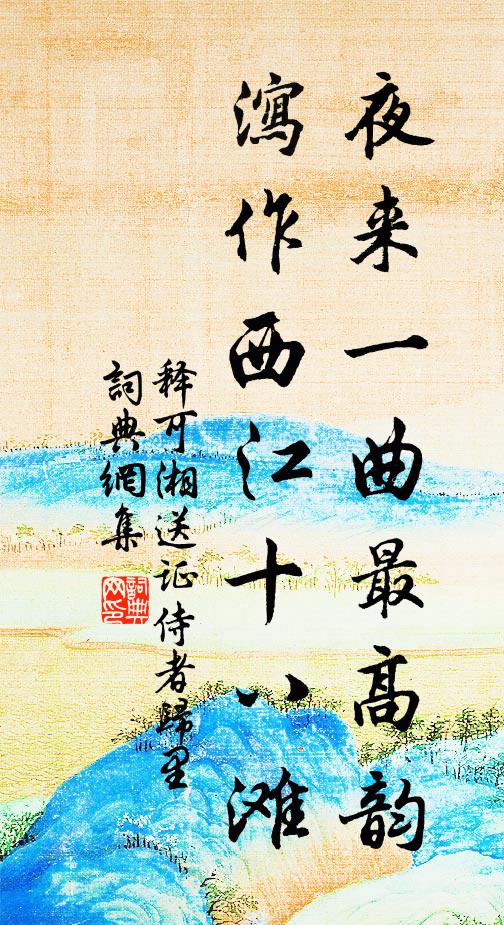 夜来一曲最高韵
瀉作西江十八滩
释可湘送证侍者歸里
詞典網集
詞典